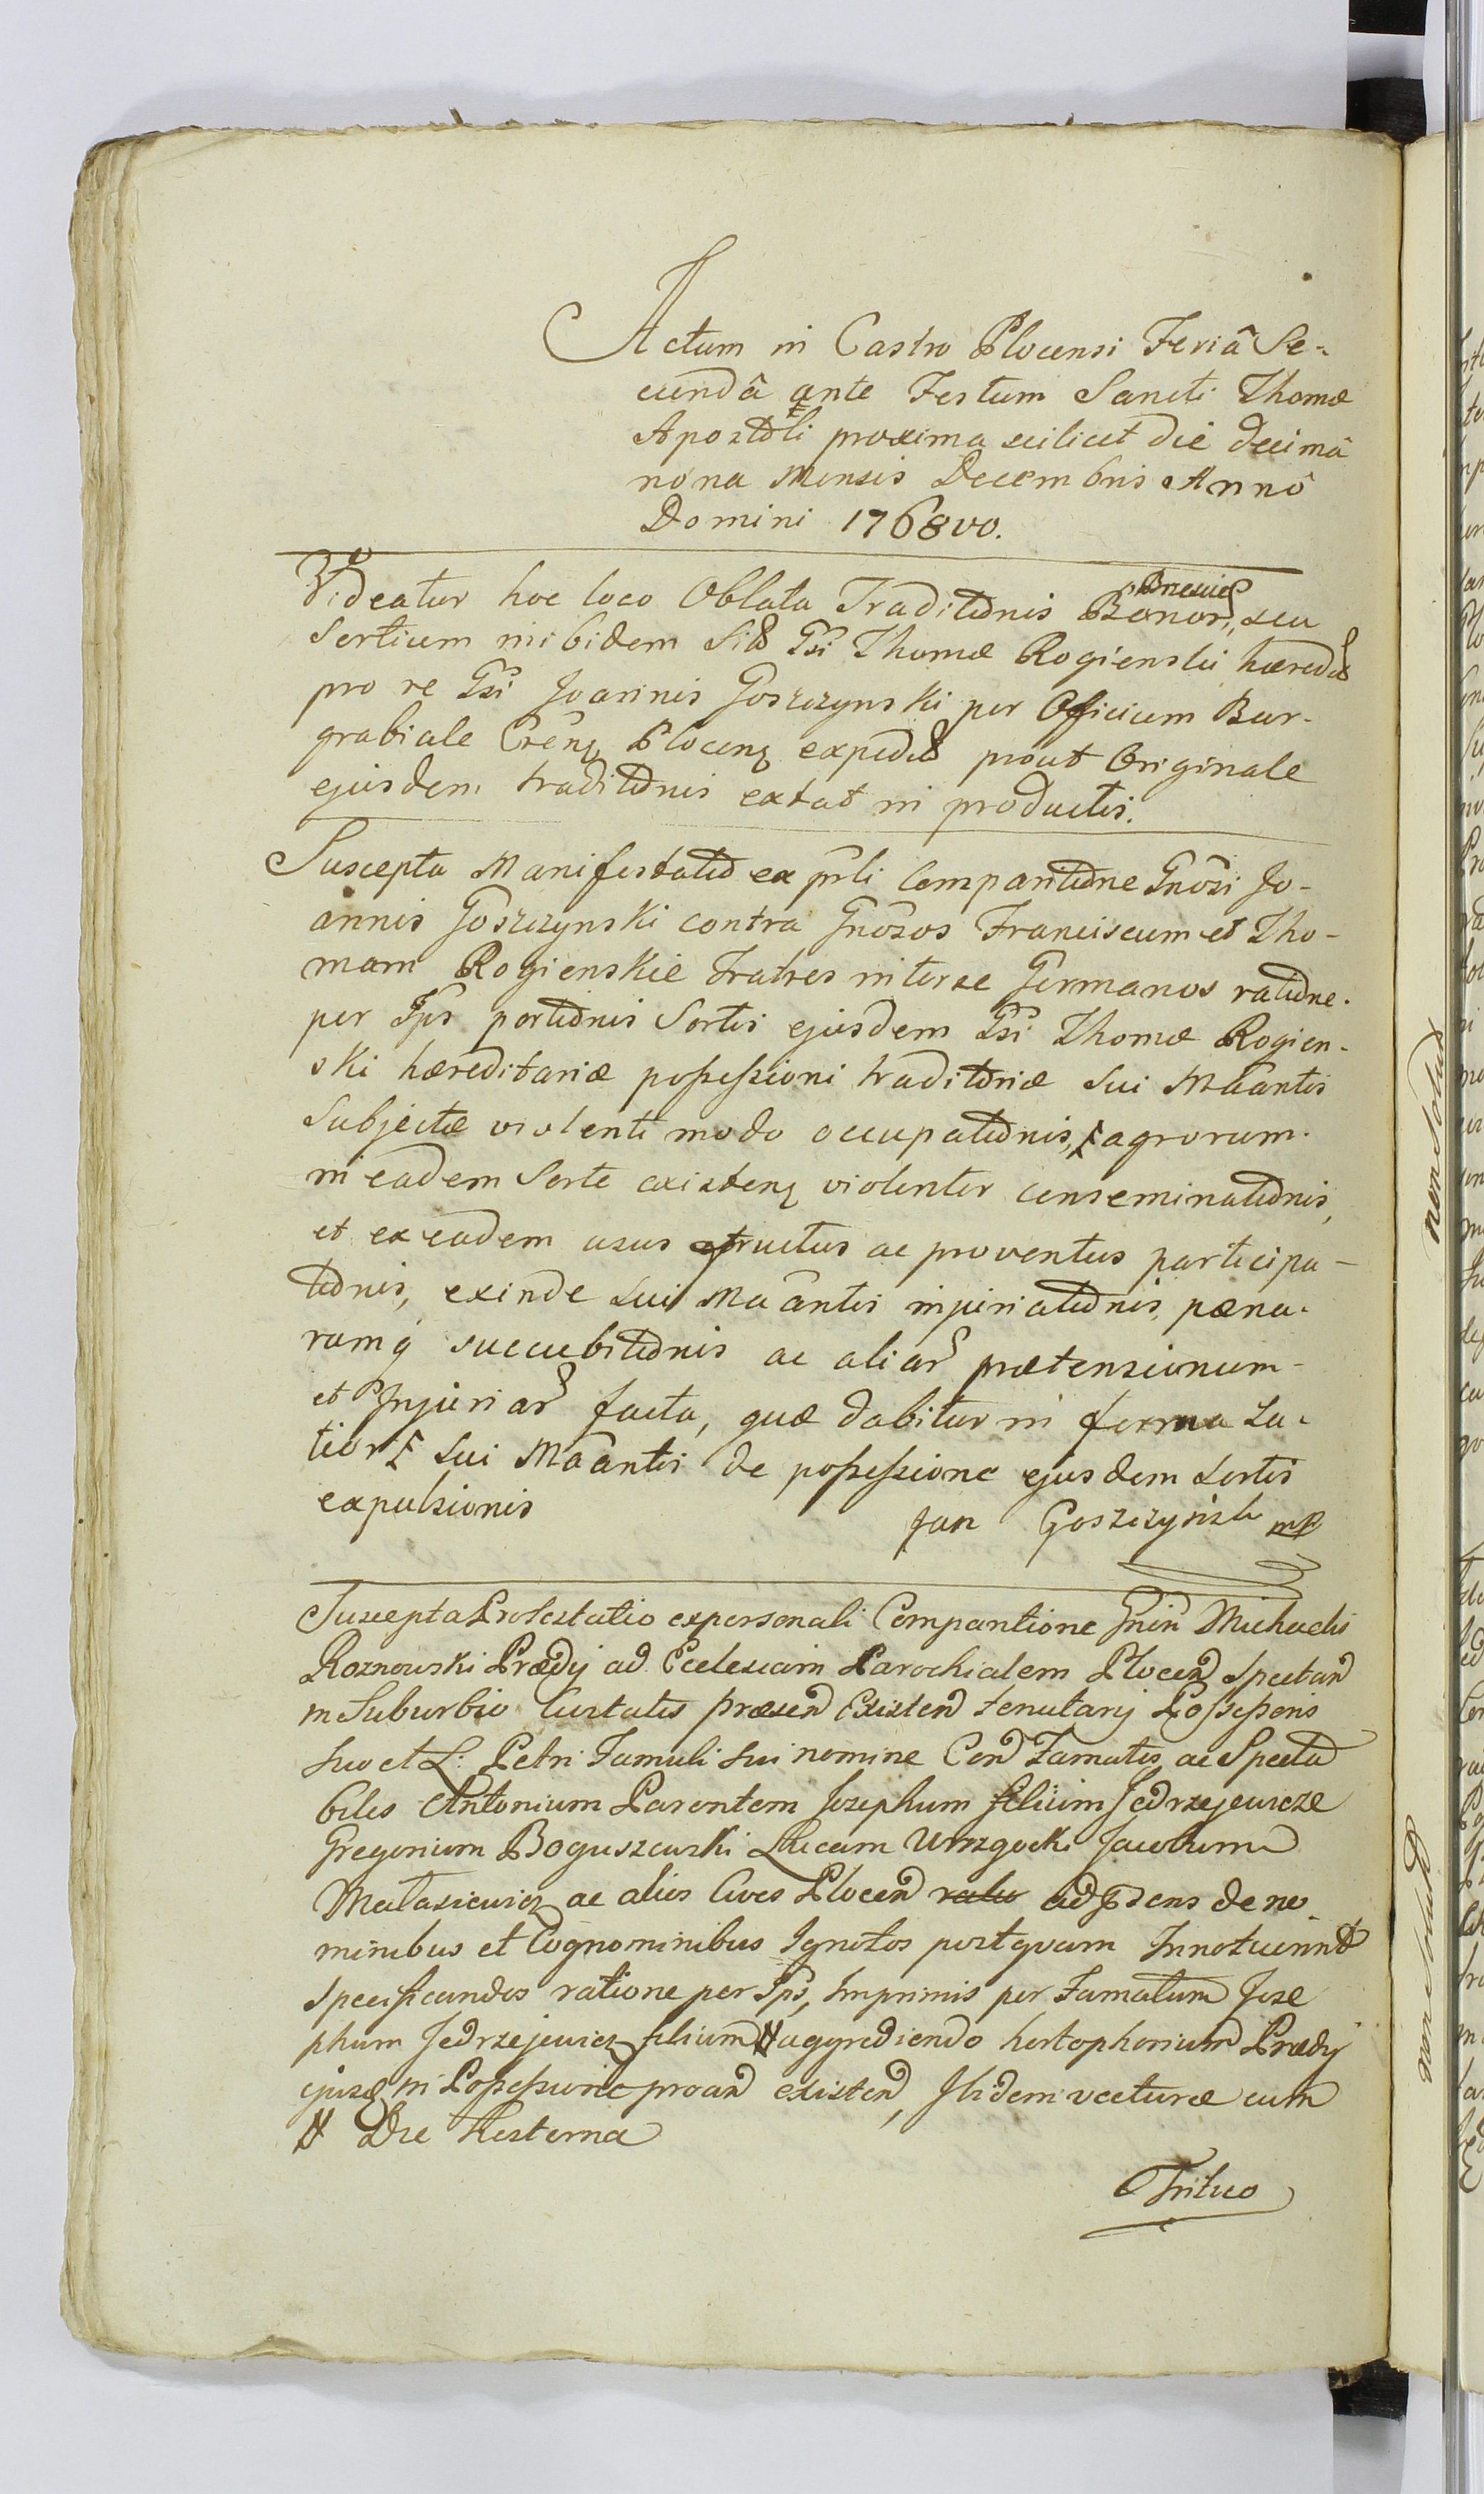 Actum in Castro Plocensi Feriâ Se-
cundâ ante Festum Sancti Thomæ
Apostoli proxima scilicet die decimâ
nona Mensis Decembris Annô
Domini 1768vo.
Videatur hoc loco Oblata Traditionis Bonor, seu
Sortium inibidem Gsi Thomæ Rogienski hæred
pro re Gsi Joannis Goszczynski per Officium Bur-
grabiale Plocen expedit prout Originale
ejusdem traditionis extat in productis.
Suscepta Manifestatio ex prli Comparitione Gnosi Jo-
annis Goszczynski contra Gnosos Franciscum et Tho-
mam Rogienskie Fratres inter se Germanos ratione
per Ips portionis Sortis ejusdem Gsi Thomæ Rogien-
ski hæreditariæ possessioni traditoriæ Sui Maantis
Subjectæ violenti modo occupationis, agrorum
in eadem Sorte existen violenter conseminationis,
et ex eadem usus fructus ac proventus participa-
tionis, exinde Sui Maantis injuriationis, pæna-
rumq succubitionis ac aliar prætensionum
et Injuriar facta, quæ dabitur in forma La-
tiori Sui Maantis de possessione ejusdem Sortis
expulsionis
Jan Goszczynski mp
Suscepta Protestatio ex personali Comparitione Michaelis
Roznowski Prædij ad Ecclesiam Parochialem Plocen Spectan
in Suburbio Civitatis præsen Existen tenutarij Possessoris
suo et L: Petri Famuli sui nomine Con Famatos ac Specta
biles Antonium Parentem Josephum filium Jedrzejewicze
Gregorium Boguszewski Lucam Jacobum
Matasiewicz ac alios Cives Plocen ad psens de no
minibus et Cognominibus Ignotos postquam Innotuerint
Specificandos ratione per Ips, Imprimis per Famatum Jose
phum Jedrzejewicz filium aggrediendo Prædij
ejusd in Possessione existen, Ibidem vecturæ cum
Die Hesterna
Tritico